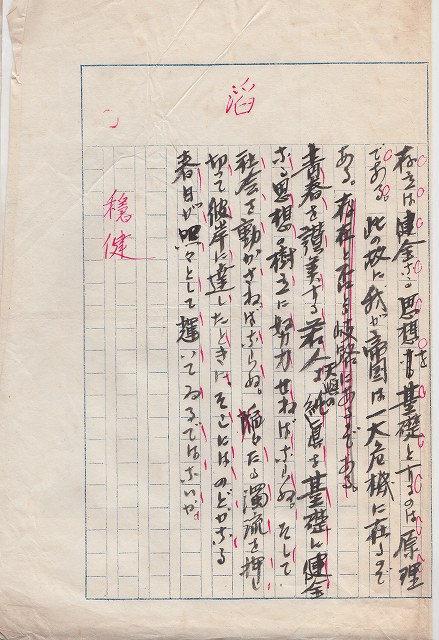 滔
存立は健全なる思想を基礎とするのは原理
である。此の故に我が帝国は一大危機に在るのぞ
ある。存在と
岐路にあるぞある。
青春を讃美する若人よ純真を基礎に健全
なる思想の樹立に努力せねばならぬ。そして
社会を動かさねばならぬ。滔々たる濁流を押し
切って彼岸に達したときは、そこにはのどかなる
春日が照々として輝いてゐるではないか。
穏健